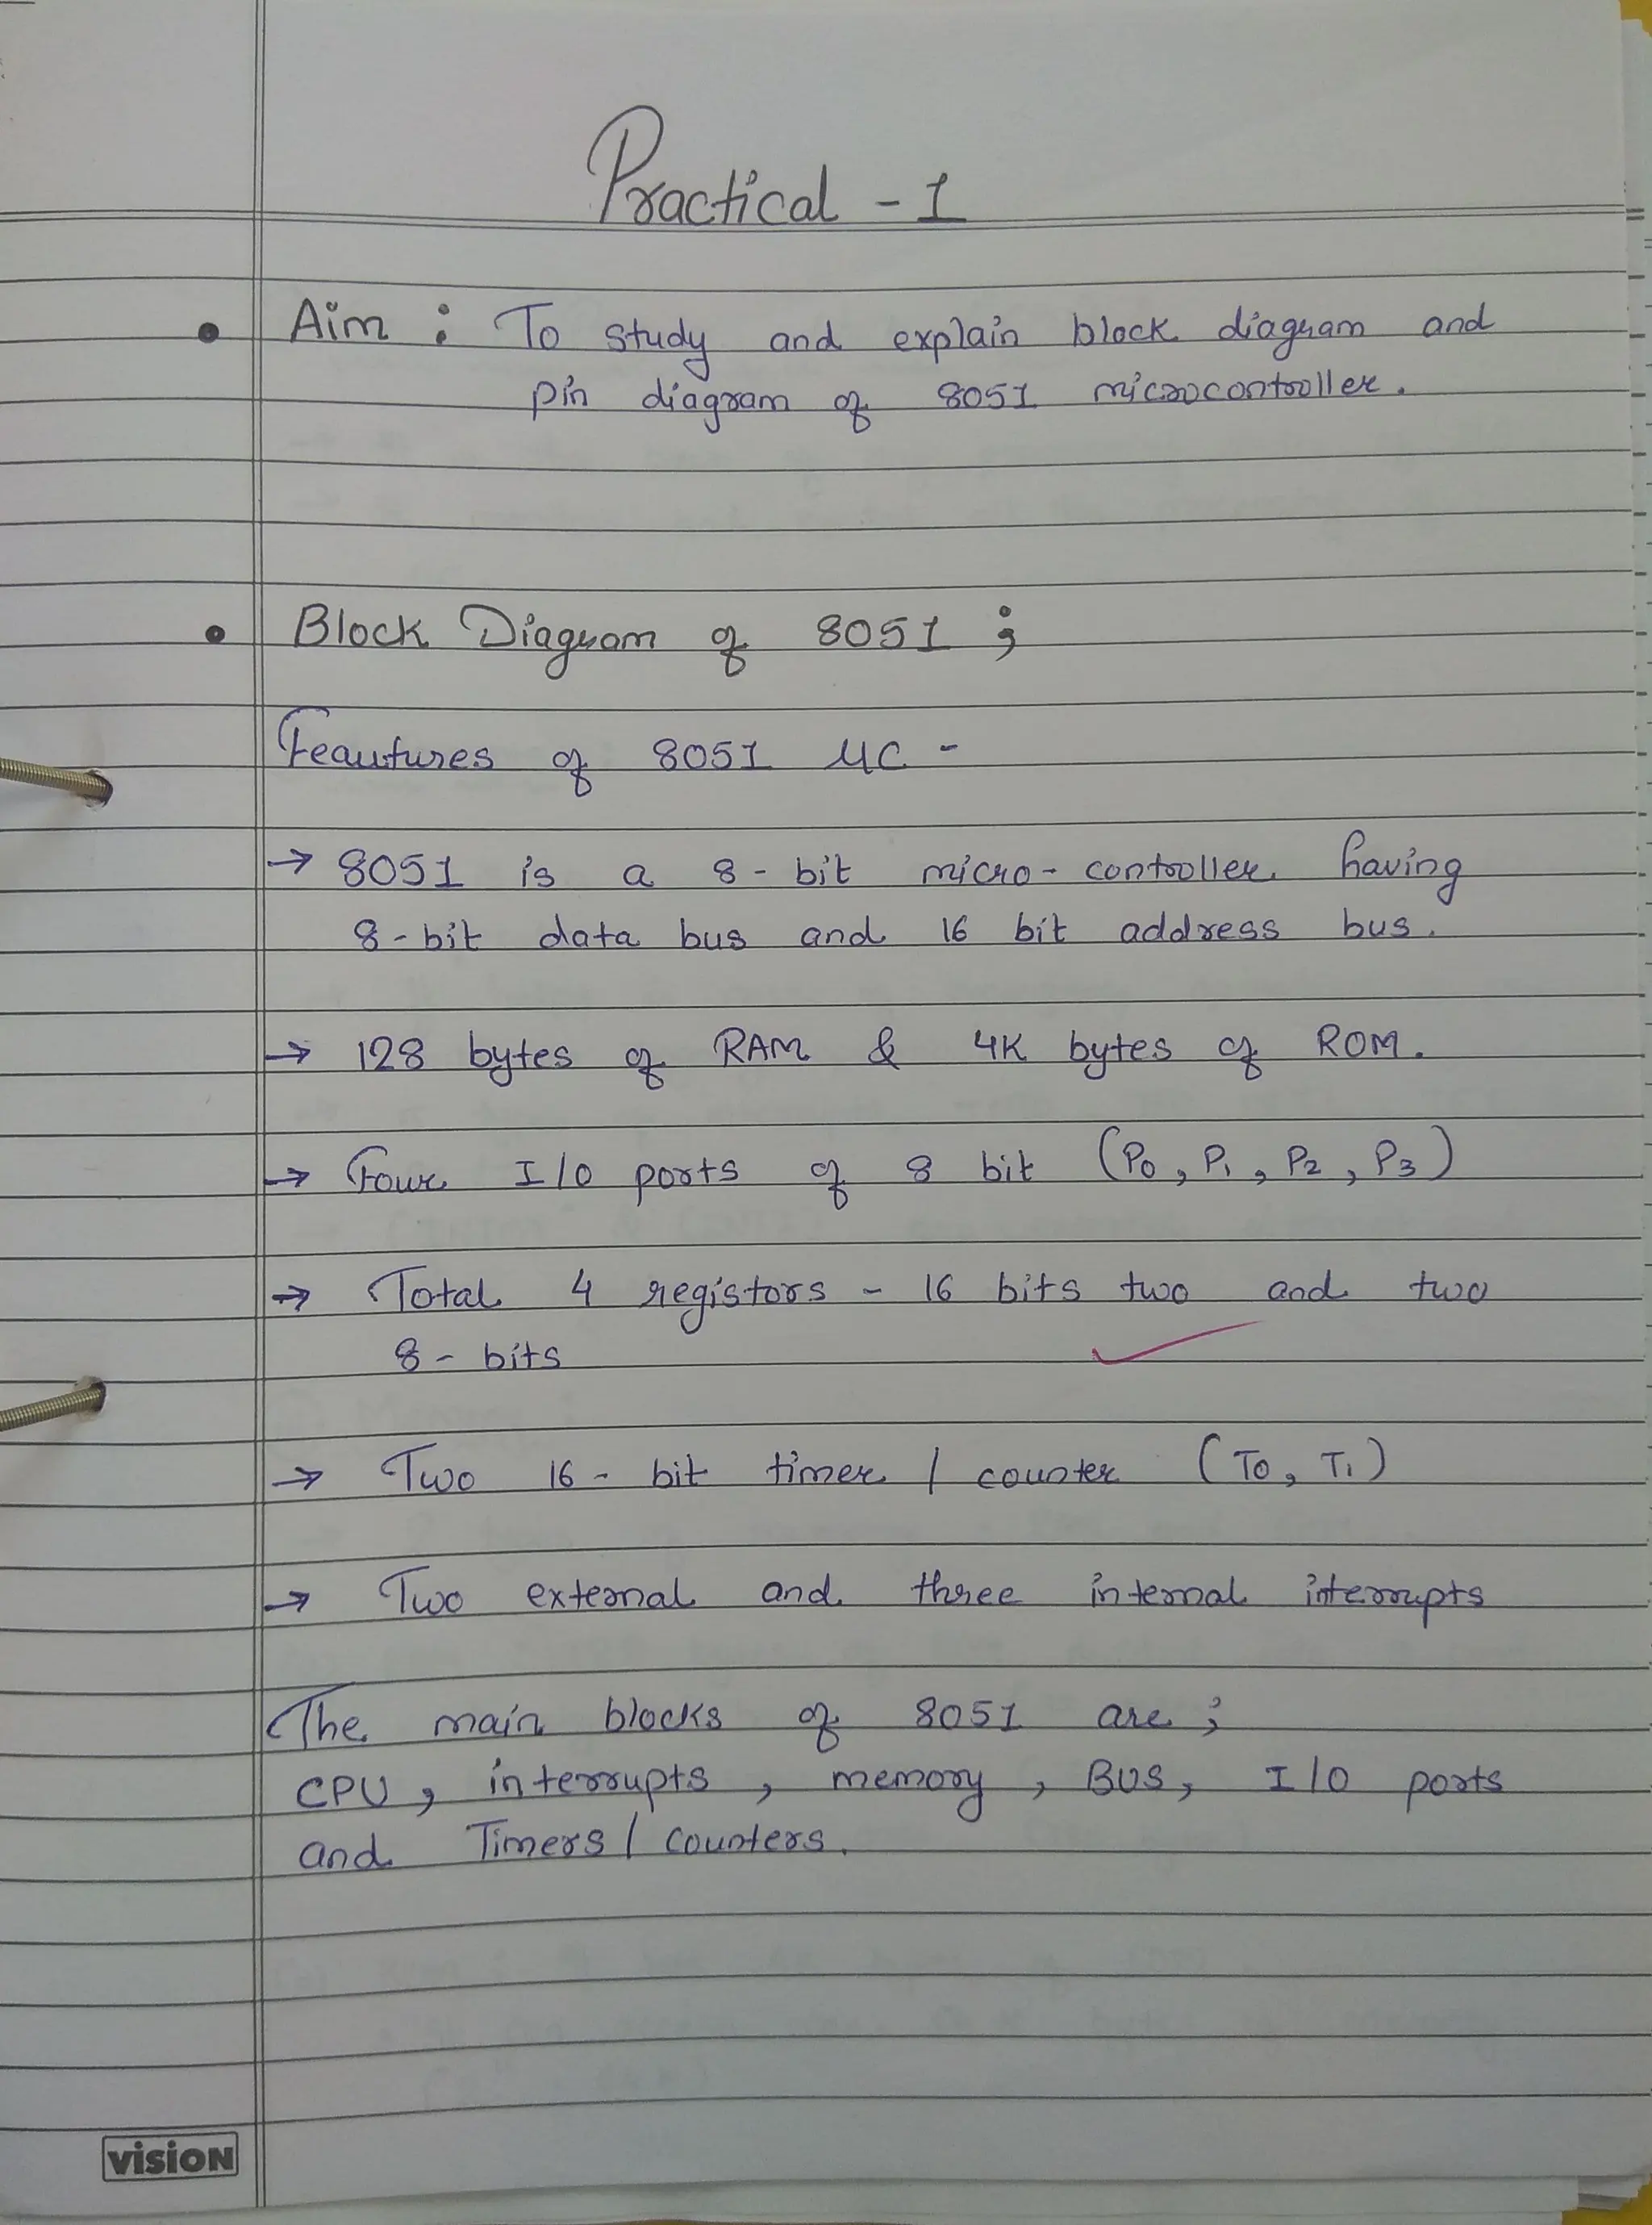 Practical - 1
• Aim : To study and explain block diagram and
pin diagram of 8051 microcontroller.
• Block Diagram of 8051 ;
Feautures of 8051 µC -
→ 8051 is a 8-bit micro-controller having
8-bit data bus and 16 bit address bus.
→ 128 bytes of RAM & 4K bytes of ROM.
→ Four I/O ports of 8 bit (P0, P1, P2, P3)
→ Total 4 registors - 16 bits two and two
8-bits
→ Two 16-bit timer / counter (T0, T1)
→ Two external and three internal interrupts
The main blocks of 8051 are ;
CPU, interrupts, memory, BUS, I/O ports
and Timers / counters.
vision